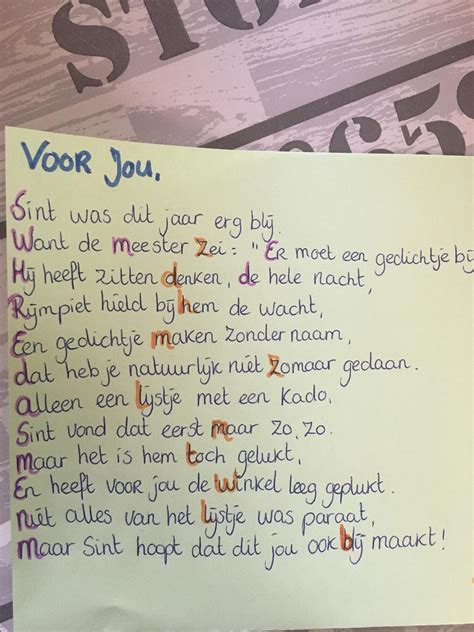 STO
365
Voor Jou.
Sint was dit jaar erg blij.
Want de meester zei: "Er moet een gedichtje bij
Hij heeft zitten denken, de hele nacht,
Rijmpiet hield bij hem de wacht,
Een gedichtje maken zonder naam,
dat heb je natuurlijk niet zomaar gedaan.
alleen een lijstje met een kado,
Sint vond dat eerst maar zo, zo.
maar het is hem toch gelukt,
En heeft voor jou de winkel leeg geplukt.
niet alles van het lijstje was paraat,
maar Sint hoopt dat dit jou ook blij maakt!